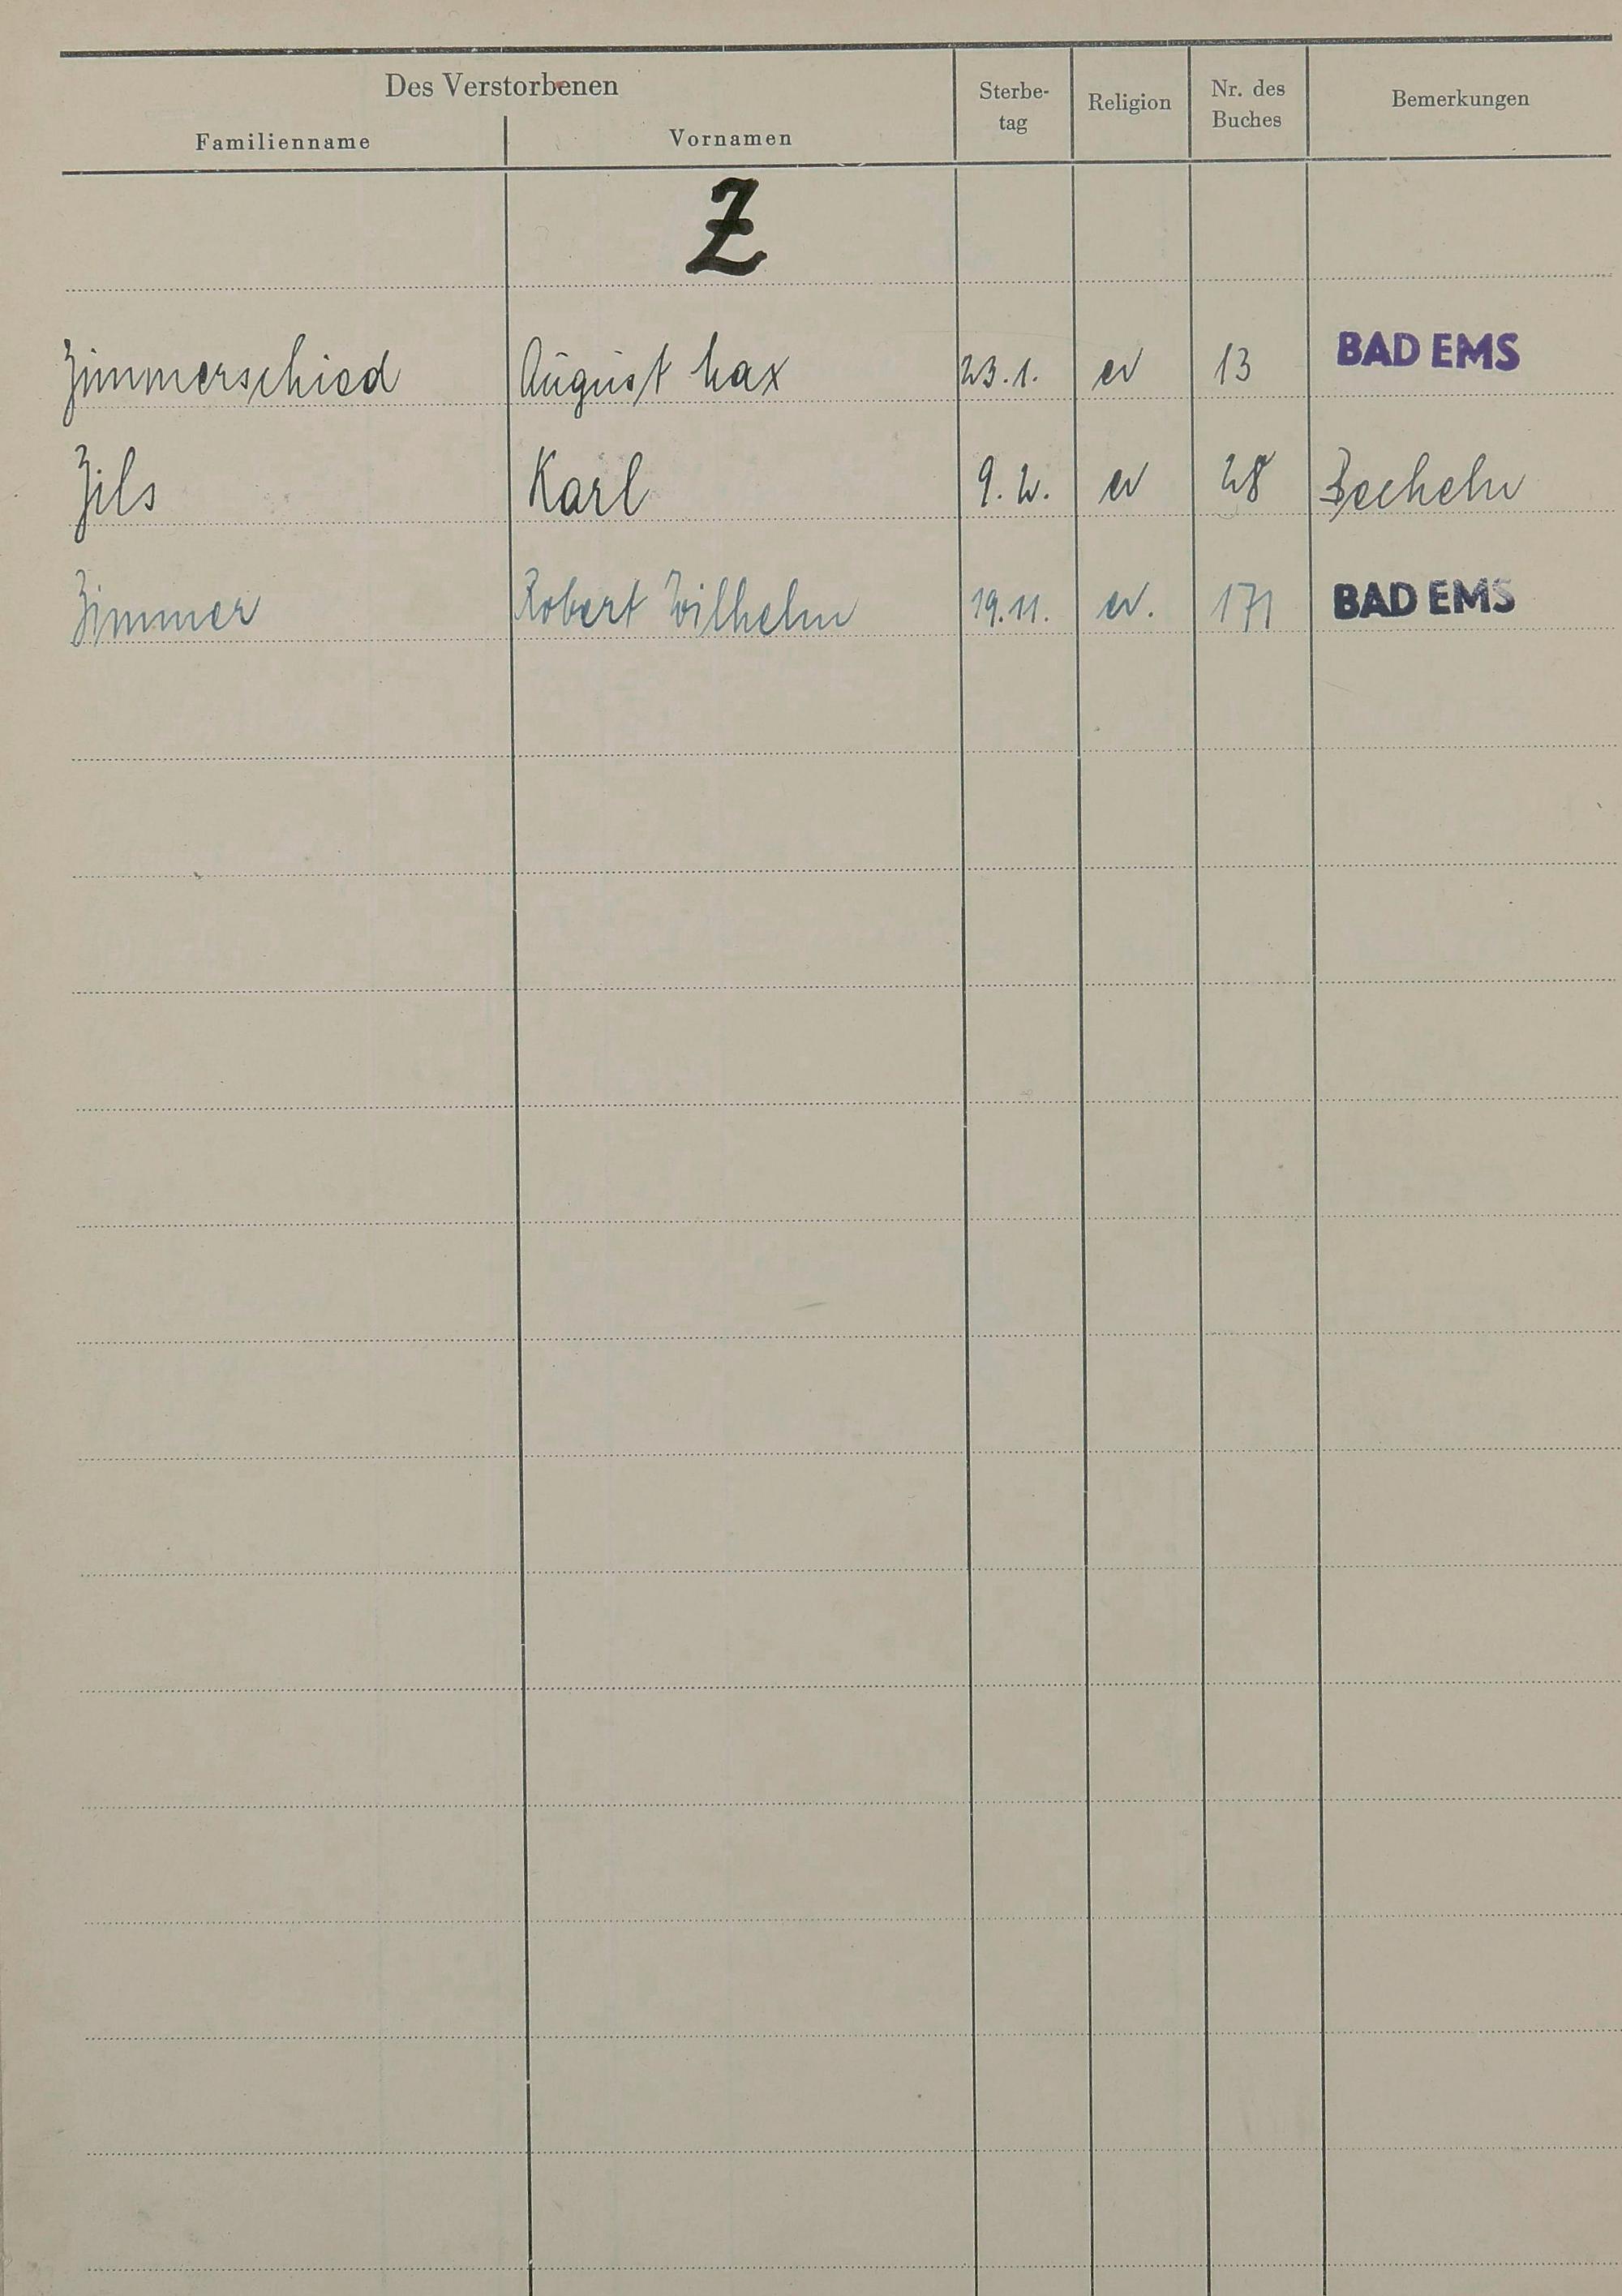 Des Verstorbenen
Familienname Vornamen Sterbe-tag Religion Nr. des Buches Bemerkungen
Z
Zimmerschied August Max 23.1. ev 13 BAD EMS
Zils Karl 9.2. ev 28 Becheln
Zimmer Robert Wilhelm 19.11. ev. 171 BAD EMS